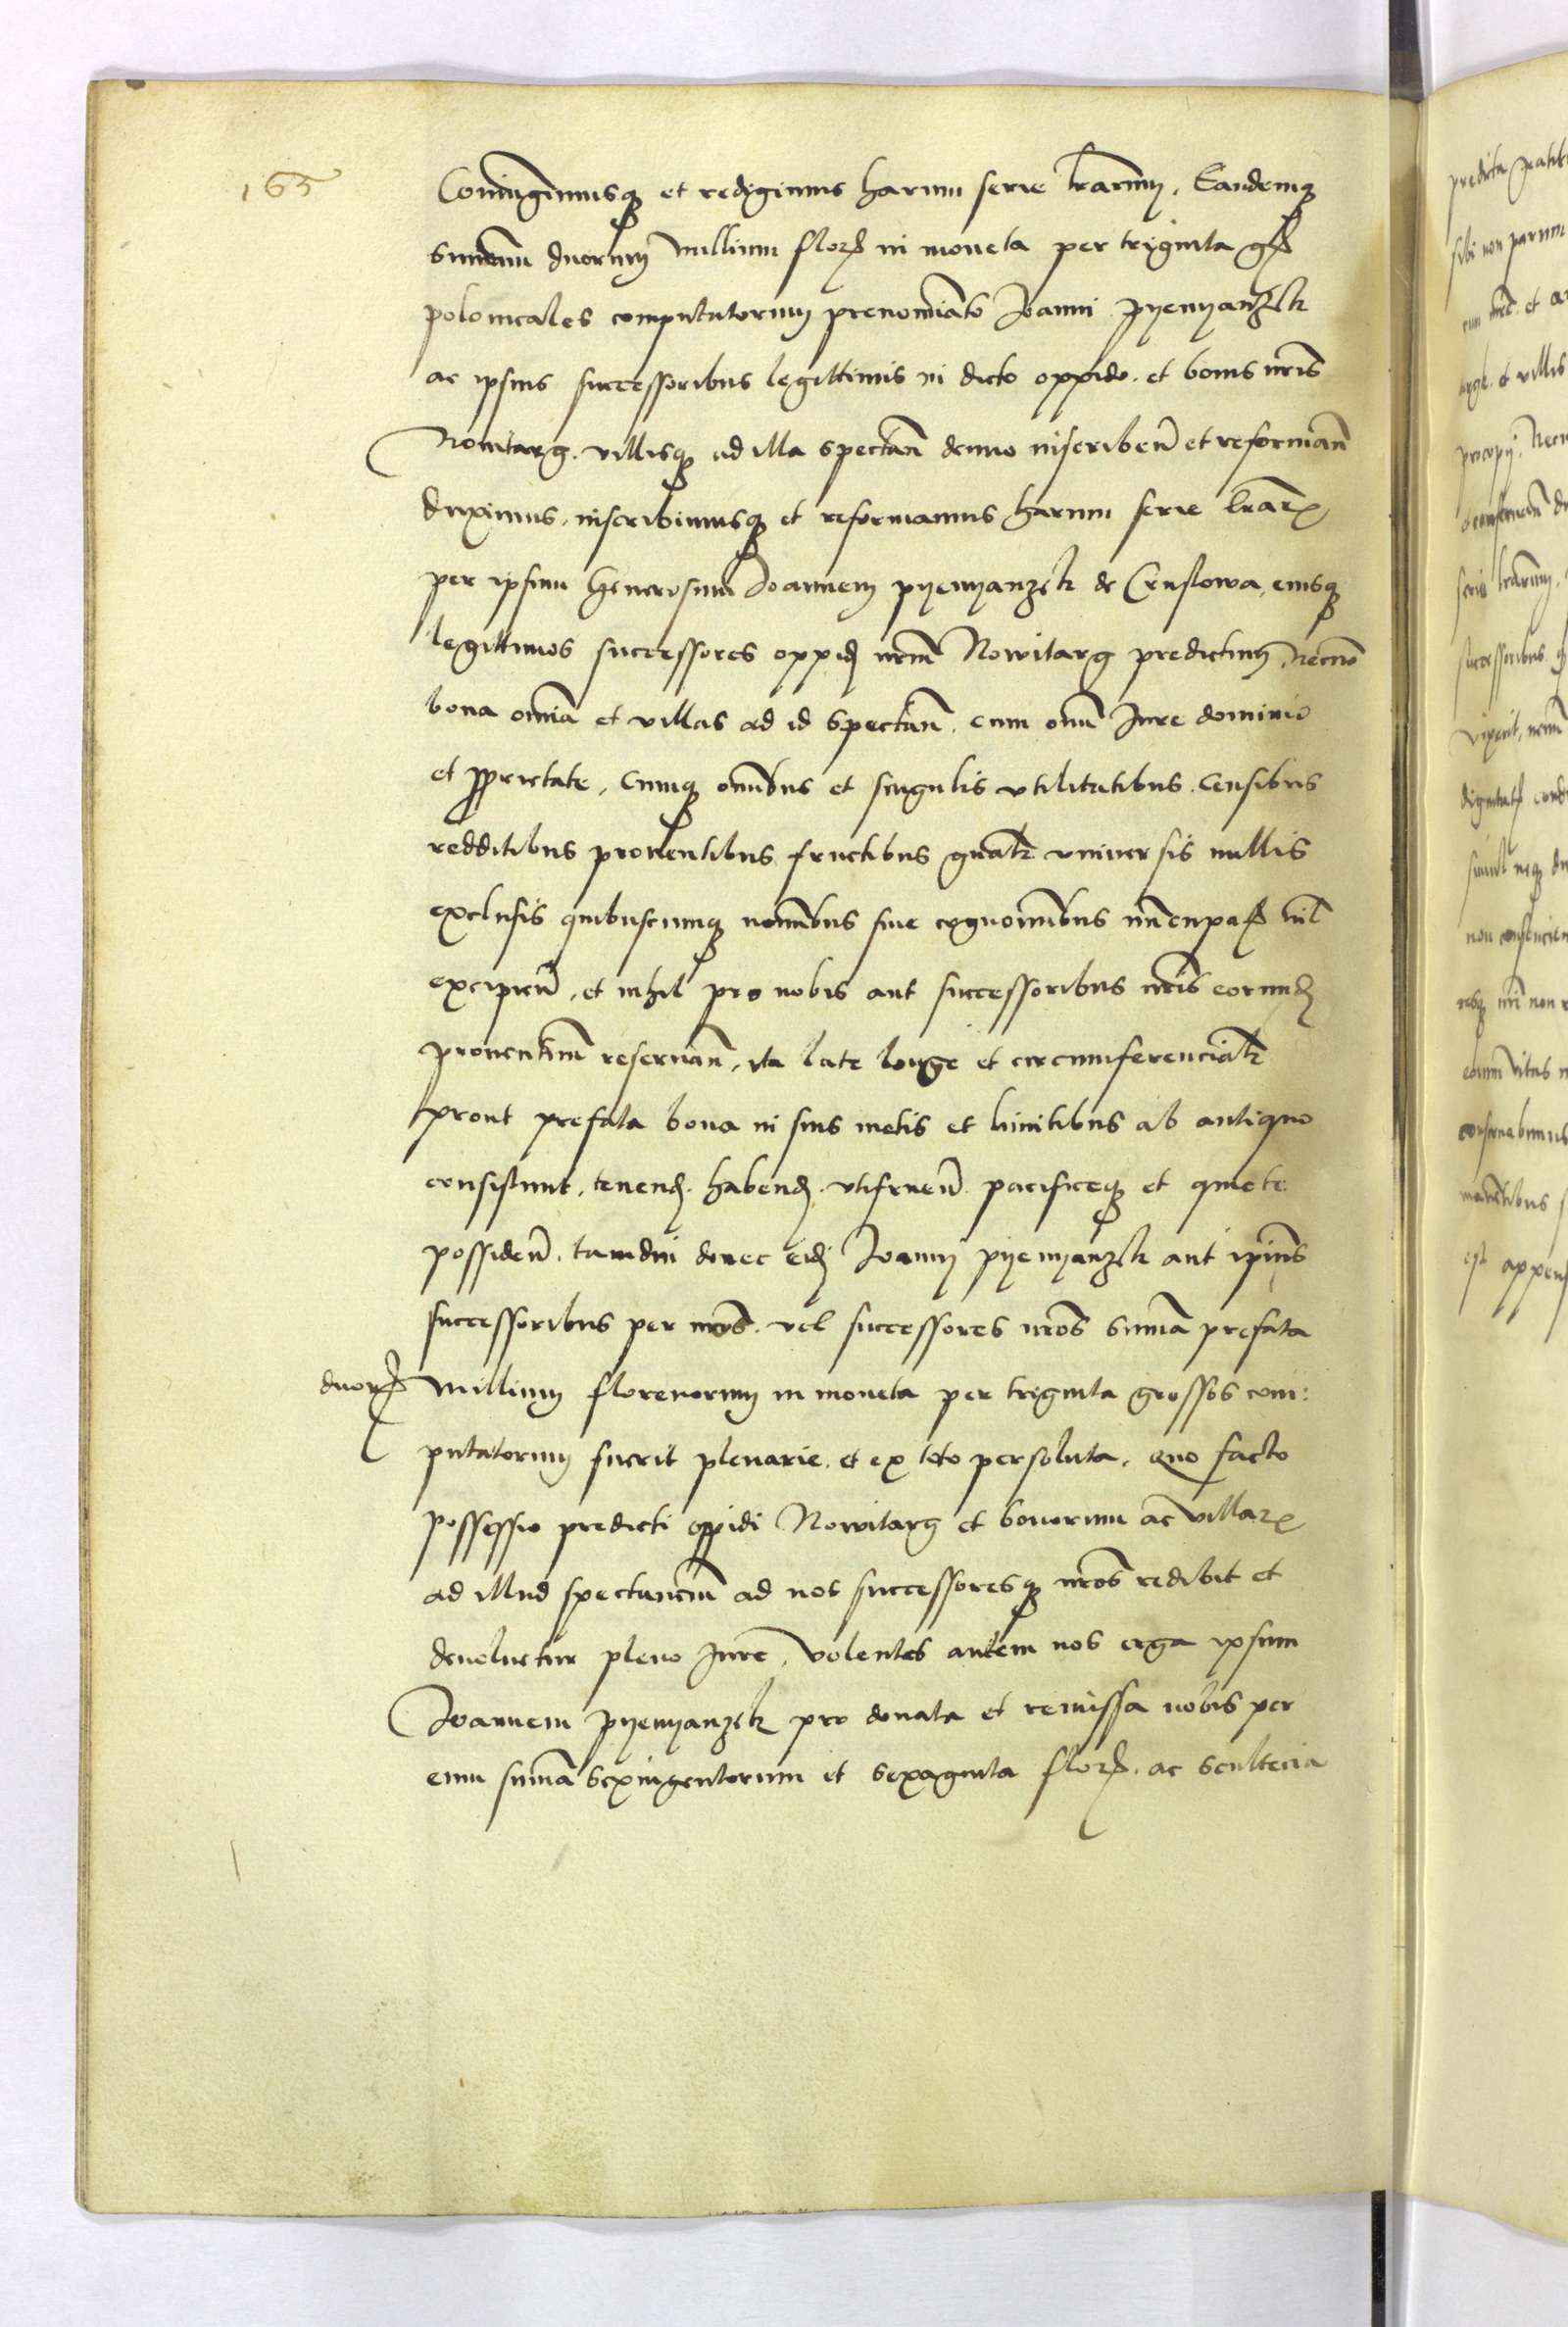 165
Coniungimusq3 et redigimus harum serie lrarum, Eandemq3
summam duorum millium flor in moneta per triginta gs
polonicales computatorum prenominato Joanni pyenyanzek
ac ipsius successoribus legittimis in dicto oppido et bonis nris
Nowitarg villisq3 ad illa spectan denuo inscriben et reforman
duximus, inscribimusq3 et reformamus harum serie lrar
per ipsum Generosum Joannem pyenyanzek de Cruslowa, eiusq3
legittimos successores oppid nrum Nowitarg predictum, Necno
bona omia et villas ad id spectan cum omi Jure dominio
et pprietate, Cumq3 omibus et singulis vtilitatibus Censibus
redditibus prouentibus fructibus gnalr vniuersis nullis
exclusis quibuscumq3 nominibus siue cognominibus nuncupas nil
excipien, et nihil pro nobis aut successoribus nris eorund
prouentuum reseruan, ita late longe et circumferencialr
prout prefata bona in suis metis et limitibus ab antiquo
consistunt, tenend habend vtifruen pacificeq3 et quiete
possiden tamdiu donec eid Joanni pyenyanzek aut ipius
successoribus per nos vel successores nros suma prefata
duor millium florenorum in moneta per triginta grossos com:
putatorum fuerit plenarie et ex toto persoluta, Quo facto
possessio predicti oppidi Nowitarg et bonorum ac villar
ad illud spectancium ad nos successoresq3 nros redibit et
deuoluetur pleno Jure, volentes autem nos erga ipsum
Joannem pyenyanzek pro donata et remissa nobis per
eum suma sexingentorum et sexaginta flor ac scultecia